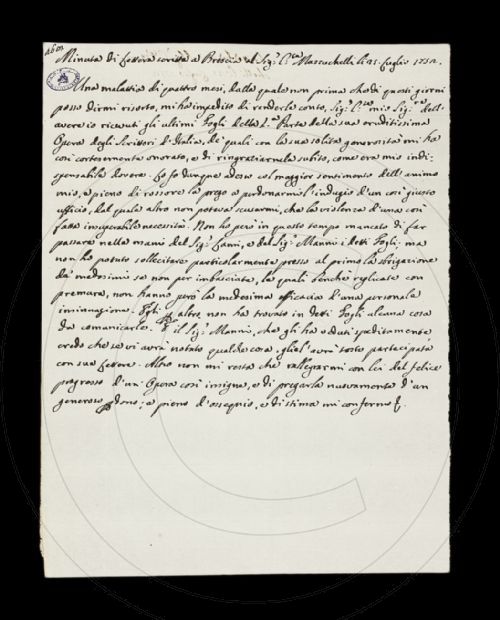 Minuta di lettera scritta a Brescia al Sig.r C.te Mazzuchelli li 25. luglio 1752.
Una malattia di quattro mesi, dalla quale non prima che di questi giorni
posso dirmi risorto, mi ha impedito di renderle conto, Sig.r C.te mio Sig.re dell'
avere io ricevuti gli ultimi Fogli della 2.a Parte della sua eruditissima
Opera degli Scrittori d'Italia, de' quali con la sua solita generosità mi ha
così cortesemente onorato, e di ringraziarnela subito, come era mio indi-
spensabile dovere. Lo fo dunque adesso col maggior sentimento dell'animo
mio, e pieno di rossore la prego a perdonarmi l'indugio d'un così giusto
ufficio, dal quale altro non poteva scusarmi, che la violenza d'una così
fatta insuperabile necessità. Non ho però in questo tempo mancato di far
passare nelle mani del Sig.r Lami, e del Sig.r Manni i detti Fogli; ma
non ho potuto sollecitare particolarmente presso al primo la sbrigazione
da' medesimi se non per imbasciata, le quali benchè replicate con
premura, non hanno però la medesima efficacia d'una personale
insinuazione. Egli altro non ha trovato in detti Fogli alcuna cosa
da comunicarle. il Sig.r Manni, che gli ha veduti speditamente
credo che se vi avrà notato qualche cosa, gliel'avrà tosto partecipata
con sue lettere. Altro non mi resta che rallegrarmi con lei del felice
progresso d'un'Opera così insigne, e di pregarla nuovamente d'un
generoso perdono; e pieno d'ossequio, e di stima mi confermo